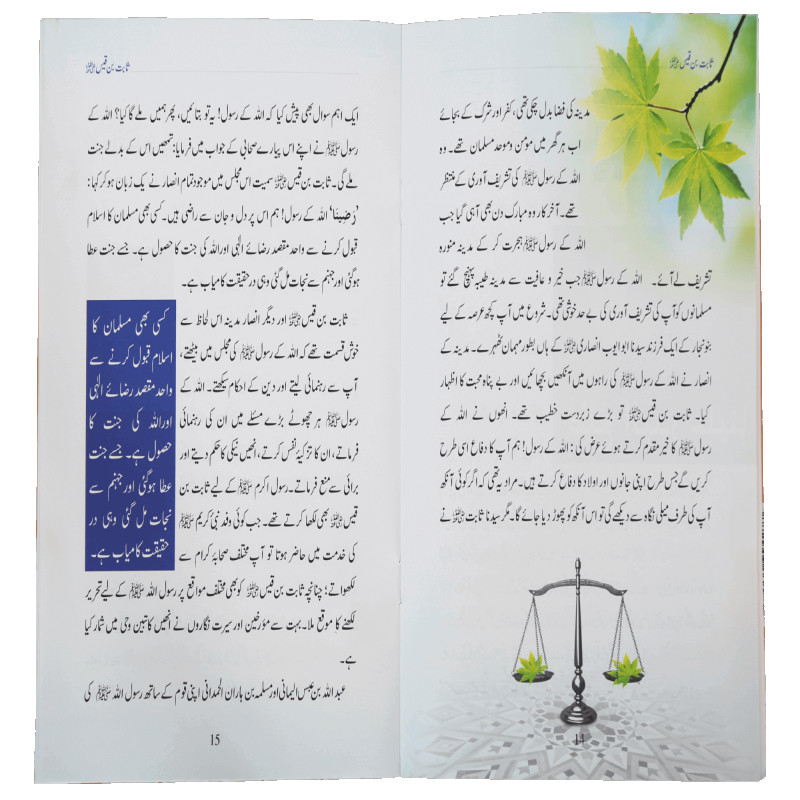 ثابت بن قیس رضی اللہ عنہ
مدینہ کی فضا بدل چکی تھی، کفر اور شرک کے بجائے
اب ہر گھر میں مؤمن و موحد مسلمان تھے۔ وہ
اللہ کے رسول ﷺ کی تشریف آوری کے منتظر
تھے۔ آخر کار وہ مبارک دن بھی آہی گیا جب
اللہ کے رسول ﷺ ہجرت کر کے مدینہ منورہ
تشریف لے آئے۔ اللہ کے رسول ﷺ جب خیر و عافیت سے مدینہ طیبہ پہنچ گئے تو
مسلمانوں کو آپ کی تشریف آوری کی بے حد خوشی تھی۔ شروع میں آپ کچھ عرصہ کے لیے
بنو نجار کے ایک فرزند سیدنا ابو ایوب انصاری رضی اللہ عنہ کے ہاں بطور مہمان ٹھہرے۔ مدینہ کے
انصار نے اللہ کے رسول ﷺ کی راہوں میں آنکھیں بچھائیں اور بے پناہ محبت کا اظہار
کیا۔ ثابت بن قیس رضی اللہ عنہ تو بڑے زبردست خطیب تھے۔ انھوں نے اللہ کے
رسول ﷺ کا خیر مقدم کرتے ہوئے عرض کی: اللہ کے رسول! ہم آپ کا دفاع اسی طرح
کریں گے جس طرح اپنی جانوں اور اولاد کا دفاع کرتے ہیں۔ مراد یہ تھی کہ اگر کوئی آنکھ
آپ کی طرف میلی نگاہ سے دیکھے گی تو اس آنکھ کو پھوڑ دیا جائے گا۔ مگر سیدنا ثابت رضی اللہ عنہ نے
14
ثابت بن قیس رضی اللہ عنہ
ایک اہم سوال بھی پیش کیا کہ اللہ کے رسول! یہ تو بتائیں، پھر ہمیں ملے گا کیا؟ اللہ کے
رسول ﷺ نے اپنے اس پیارے صحابی کے جواب میں فرمایا: تمھیں اس کے بدلے جنت
ملے گی۔ ثابت بن قیس رضی اللہ عنہ سمیت اس مجلس میں موجود تمام انصار نے یک زبان ہو کر کہا:
’رَضِینَا‘ اللہ کے رسول! ہم اس پر دل و جان سے راضی ہیں۔ کسی بھی مسلمان کا اسلام
قبول کرنے سے واحد مقصد رضائے الٰہی اور اللہ کی جنت کا حصول ہے۔ جسے جنت عطا
ہوگئی اور جہنم سے نجات مل گئی وہی در حقیقت کامیاب ہے۔
ثابت بن قیس رضی اللہ عنہ اور دیگر انصار مدینہ اس لحاظ سے
خوش قسمت تھے کہ اللہ کے رسول ﷺ کی مجلس میں بیٹھتے،
آپ سے رہنمائی لیتے اور دین کے احکام سیکھتے۔ اللہ کے
رسول ﷺ ہر چھوٹے بڑے مسئلے میں ان کی رہنمائی
فرماتے، ان کا تزکیۂ نفس کرتے، انھیں نیکی کا حکم دیتے اور
برائی سے منع فرماتے۔ رسول اکرم ﷺ کے لیے ثابت بن
قیس رضی اللہ عنہ بھی لکھا کرتے تھے۔ جب کوئی وفد نبی کریم ﷺ
کی خدمت میں حاضر ہوتا تو آپ مختلف صحابۂ کرام سے
لکھواتے؛ چنانچہ ثابت بن قیس رضی اللہ عنہ کو بھی مختلف مواقع پر رسول اللہ ﷺ کے لیے تحریر
لکھنے کا موقع ملا۔ بہت سے مؤرخین اور سیرت نگاروں نے انھیں کاتبین وحی میں شمار کیا
ہے۔
عبداللہ بن عبس الیمانی اور مسلمہ بن ہاران الحدانی اپنی قوم کے ساتھ رسول اللہ ﷺ کی
کسی بھی مسلمان کا
اسلام قبول کرنے سے
واحد مقصد رضائے الٰہی
اور اللہ کی جنت کا
حصول ہے۔ جسے جنت
عطا ہوگئی اور جہنم سے
نجات مل گئی وہی در
حقیقت کامیاب ہے۔
15